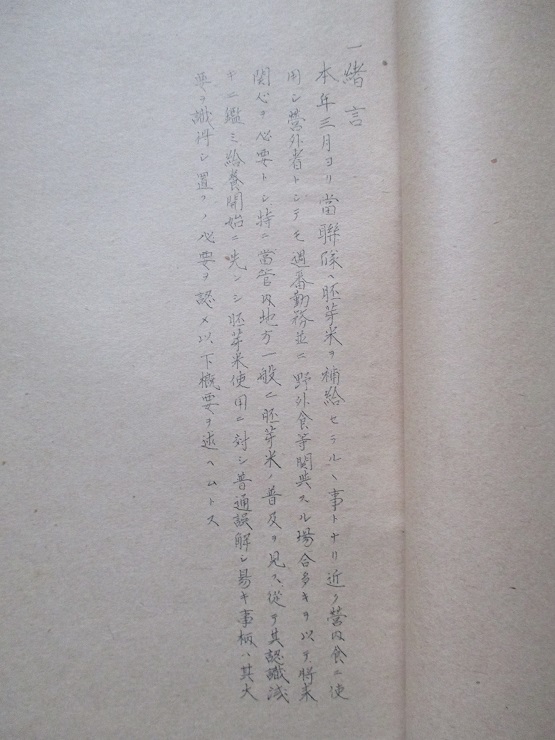 一緒言
本年三月ヨリ當聯隊ハ胚芽米ヲ補給セラルヽ事トナリ近ク營内食ニ使
用シ營外者トシテモ週番勤務並ニ野外食等関與スル場合多キヲ以テ將来
関心ヲ必要トシ特ニ當管内地方一般ニ胚芽米ノ普及ヲ見ス從テ其認識浅
キニ鑑ミ給養開始ニ先ンシ胚芽米使用ニ対シ普通誤解シ易キ事柄ハ其大
要ヲ識得シ置クノ必要ヲ認メ以下概要ヲ述ヘムトス